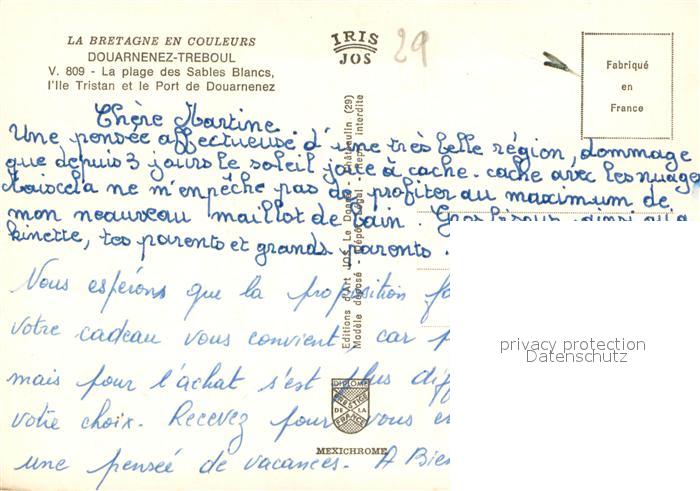 LA BRETAGNE EN COULEURS
DOUARNENEZ-TREBOUL
V. 809 - La plage des Sables Blancs,
l'Ile Tristan et le Port de Douarnenez
IRIS
JOS
29
Fabriqué
en
France
Chère Martine
Une pensée affectueuse d'une très belle région, dommage
que depuis 3 jours le soleil joue à cache-cache avec les nuages
Mais cela ne m'empêche pas de profiter au maximum de
mon nouveau maillot de bain. Gros bisous ainsi qu'à
kinette, tes parents et grands parents.
Nous espérons que la proposition
votre cadeau vous convient, car
mais pour l'achat s'est plus
votre choix. Recevez pour vous
une pensée de vacances. A
Editions d'Art JOS Le Doaré - Châteaulin (29)
Modèle déposé - Dépôt légal - Reprod. interdite
DIPLOME
PRESTIGE
DE LA
FRANCE
MEXICHROME
privacy protection
Datenschutz